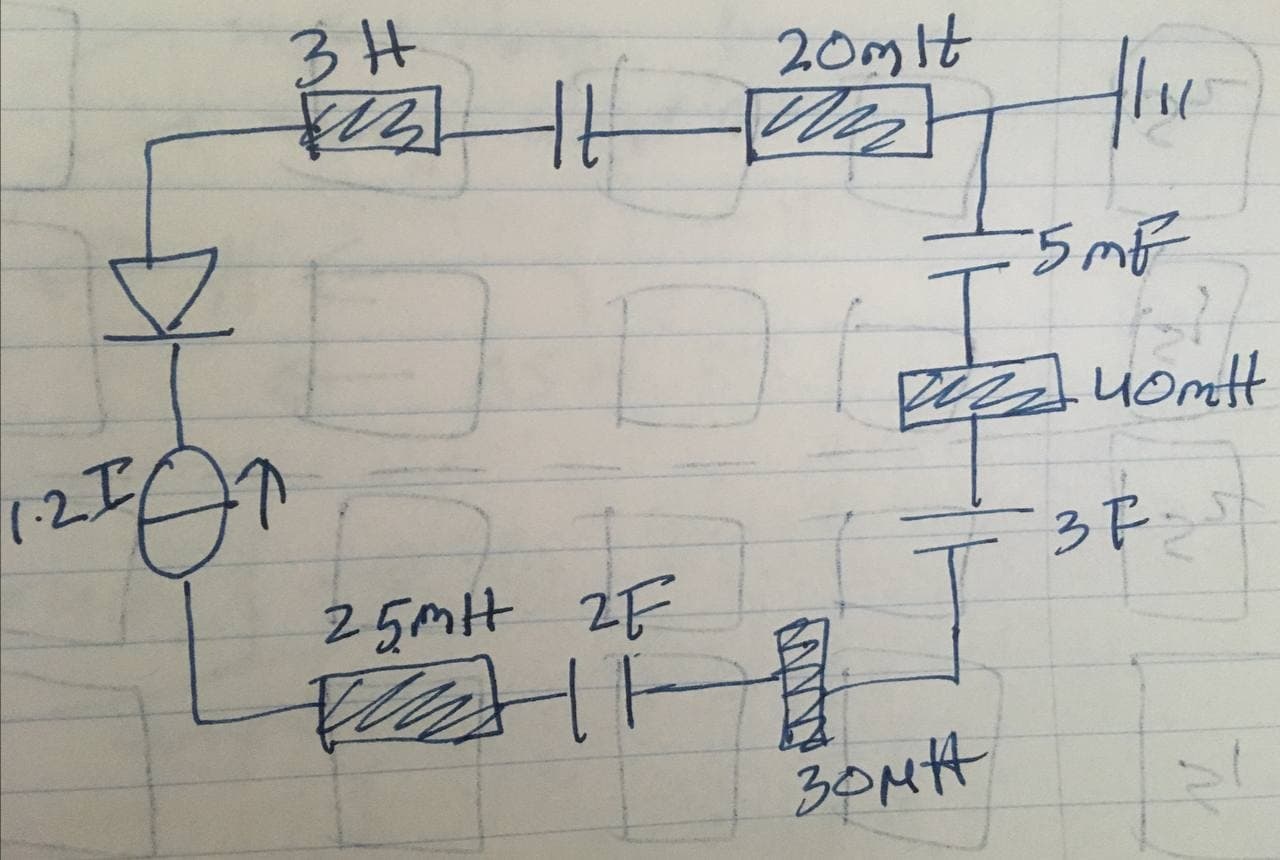 3 H
20mH
5mF
40mH
1.2I
3F
25mH
2F
30μH